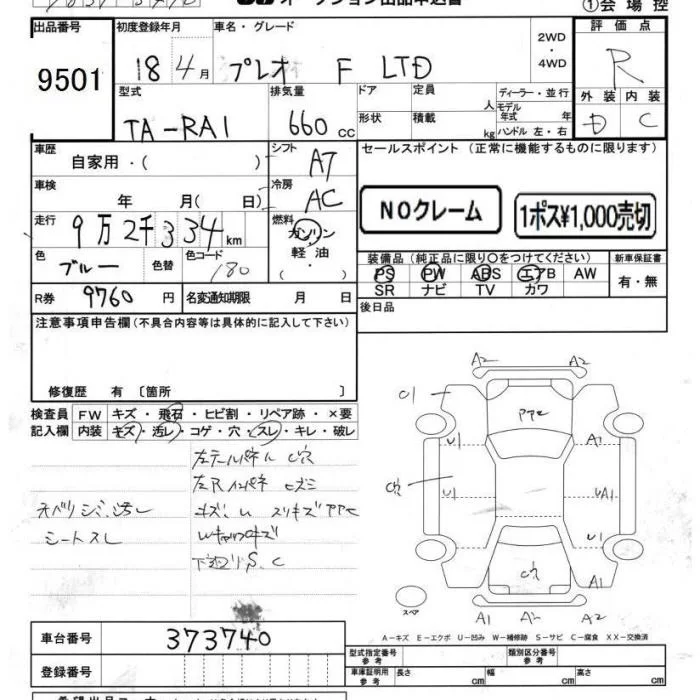 オークション出品申込書
①会場控
出品番号 初度登録年月 車名・グレード 2WD ・ 4WD 評価点
9501 18 4月 プレオ F LTD R
型式 排気量 ドア 定員 人 ディーラー・並行 外装 内装
TA-RA1 660 cc 形状 積載 kg モデル年式 年 ハンドル 左・右 D C
車歴 自家用・( ) シフト AT セールスポイント(正常に機能するものに限ります)
車検 年 月( 日) 冷房 AC NOクレーム 1ポス¥1,000売切
走行 9万2千334km 燃料 ガソリン・軽油・( )
色 ブルー 色替 色コード 180
装備品(純正品に限り○をつけてください) 新車保証書
PS PW ABS エアB AW 有・無
SR ナビ TV カワ
R券 9760円 名変通知期限 月 日 後日品
注意事項申告欄(不具合内容等は具体的に記入して下さい)
修復歴 有 〔箇所 〕
検査員記入欄 FW キズ・飛石・ヒビ割・リペア跡・×要
内装 キズ・汚レ・コゲ・穴・スレ・キレ・破レ
シートスレ
下廻りS.C
A2 A2
C1 PPセ
U1 A1
C穴 U1 UA1
U1 U1
C穴 A1
スペア
A1 A2 A2
A-キズ E-エクボ U-凹み W-補修跡 S-サビ C-腐食 XX-交換済
車台番号 373740
型式指定番号 参考 類別区分番号 参考
登録番号
車庫証明用 参考 長さ cm 幅 cm 高さ cm